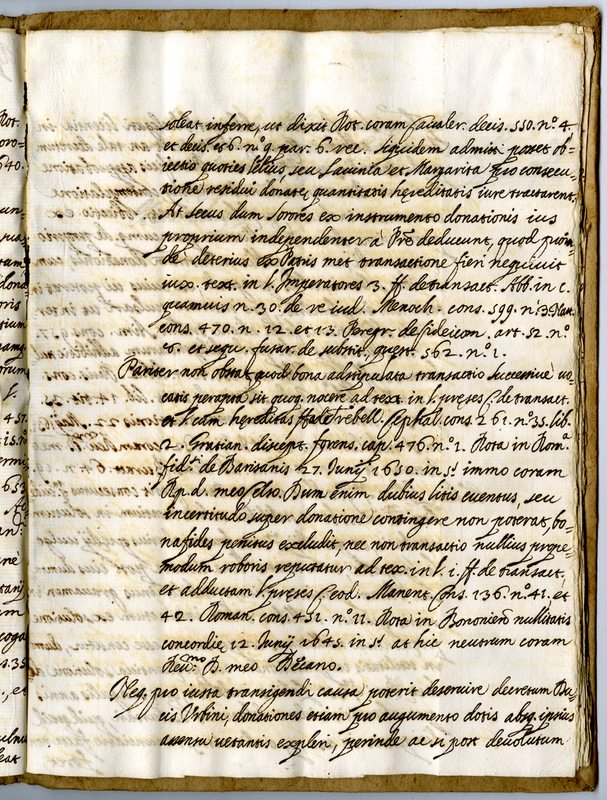 soleat inferre, ut dixit Rot. coram Cavaler. decis. 550. nº. 4.
et decis. 6. nº. 9. par. 6. rec. siquidem admitti posset ob=
iectio quoties seu Lavinia et Margarita pro consecu=
tione donatę quantitatis hęreditatis iure tractarent,
At secus dum sorores ex instrumento donationis ius
proprium independenter à Pre deducunt, quod
de deterius ex Patris met transactione fieri nequivit
iux. text. in l. Imperatores 3. ff. de transact. Abb. in c.
quamvis n. 30. de re iud. Menoch. cons. 599. nº. 3.
cons. 470. n. 12. et 13. Peregr. de fideicom. art. 52. nº
et sequ. fusar. de substit. quęst. 562. nº. 1.
Pariter non obstat, quod bona adstipulata transactio successivę vo=
catis perapta sit quoq. nocere ad text. in l. pręses C. de transact.
et l. cum hereditas ff. ad Trebell. Cephal. cons. 261. nº. 35. lib.
2. Gratian. discept. forens. cap. 476. nº. 1. Rota in Romª.
fidi. de Baritanis 27. Junij 1650. in s. immo coram
Rp. d. meo Celso. Dum enim dubius litis eventus, seu
incertitudo super donatione contingere non poterat, bo=
na fides penitus excludit, nec non transactio nullius prope
modum roboris reputatur ad tex. in l. 1. ff. de transact.
et adductam l. pręses C. eod. Manent. cons. 136. nº. 41. et
42. Roman. cons. 451. nº. 11. Rota in Bononien nullitatis
concordię 12. Junij 1645. in s. at hic neutrum coram
Reu.mo D. meo Decano.
Neq. pro iusta transigendi causa poterit deservire decretum Du=
cis Urbini, donationes etiam pro augumento dotis absq. ipsius
assensu vetantis expleri, perinde ac si post devolutum